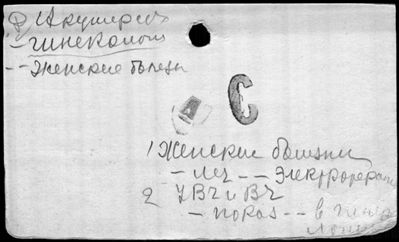 Акушерст
гинеколог
-- Женские болезн
С
1 Женские болезни
- леч -- Электротерап
2 УВЧ и ВЧ
- показ -- в гине